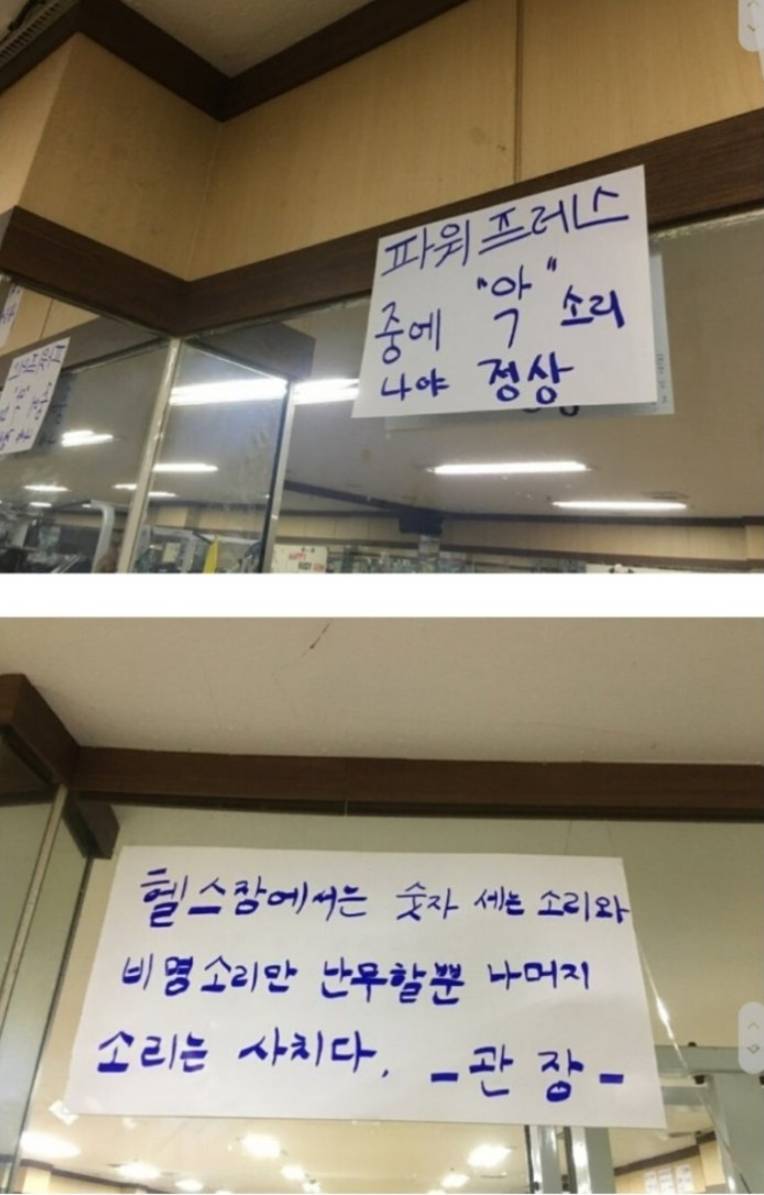 파워프레스
중에 "악" 소리
나야 정상
헬스장에서는 숫자 세는 소리와
비명소리만 난무할뿐 나머지
소리는 사치다.
-관장-